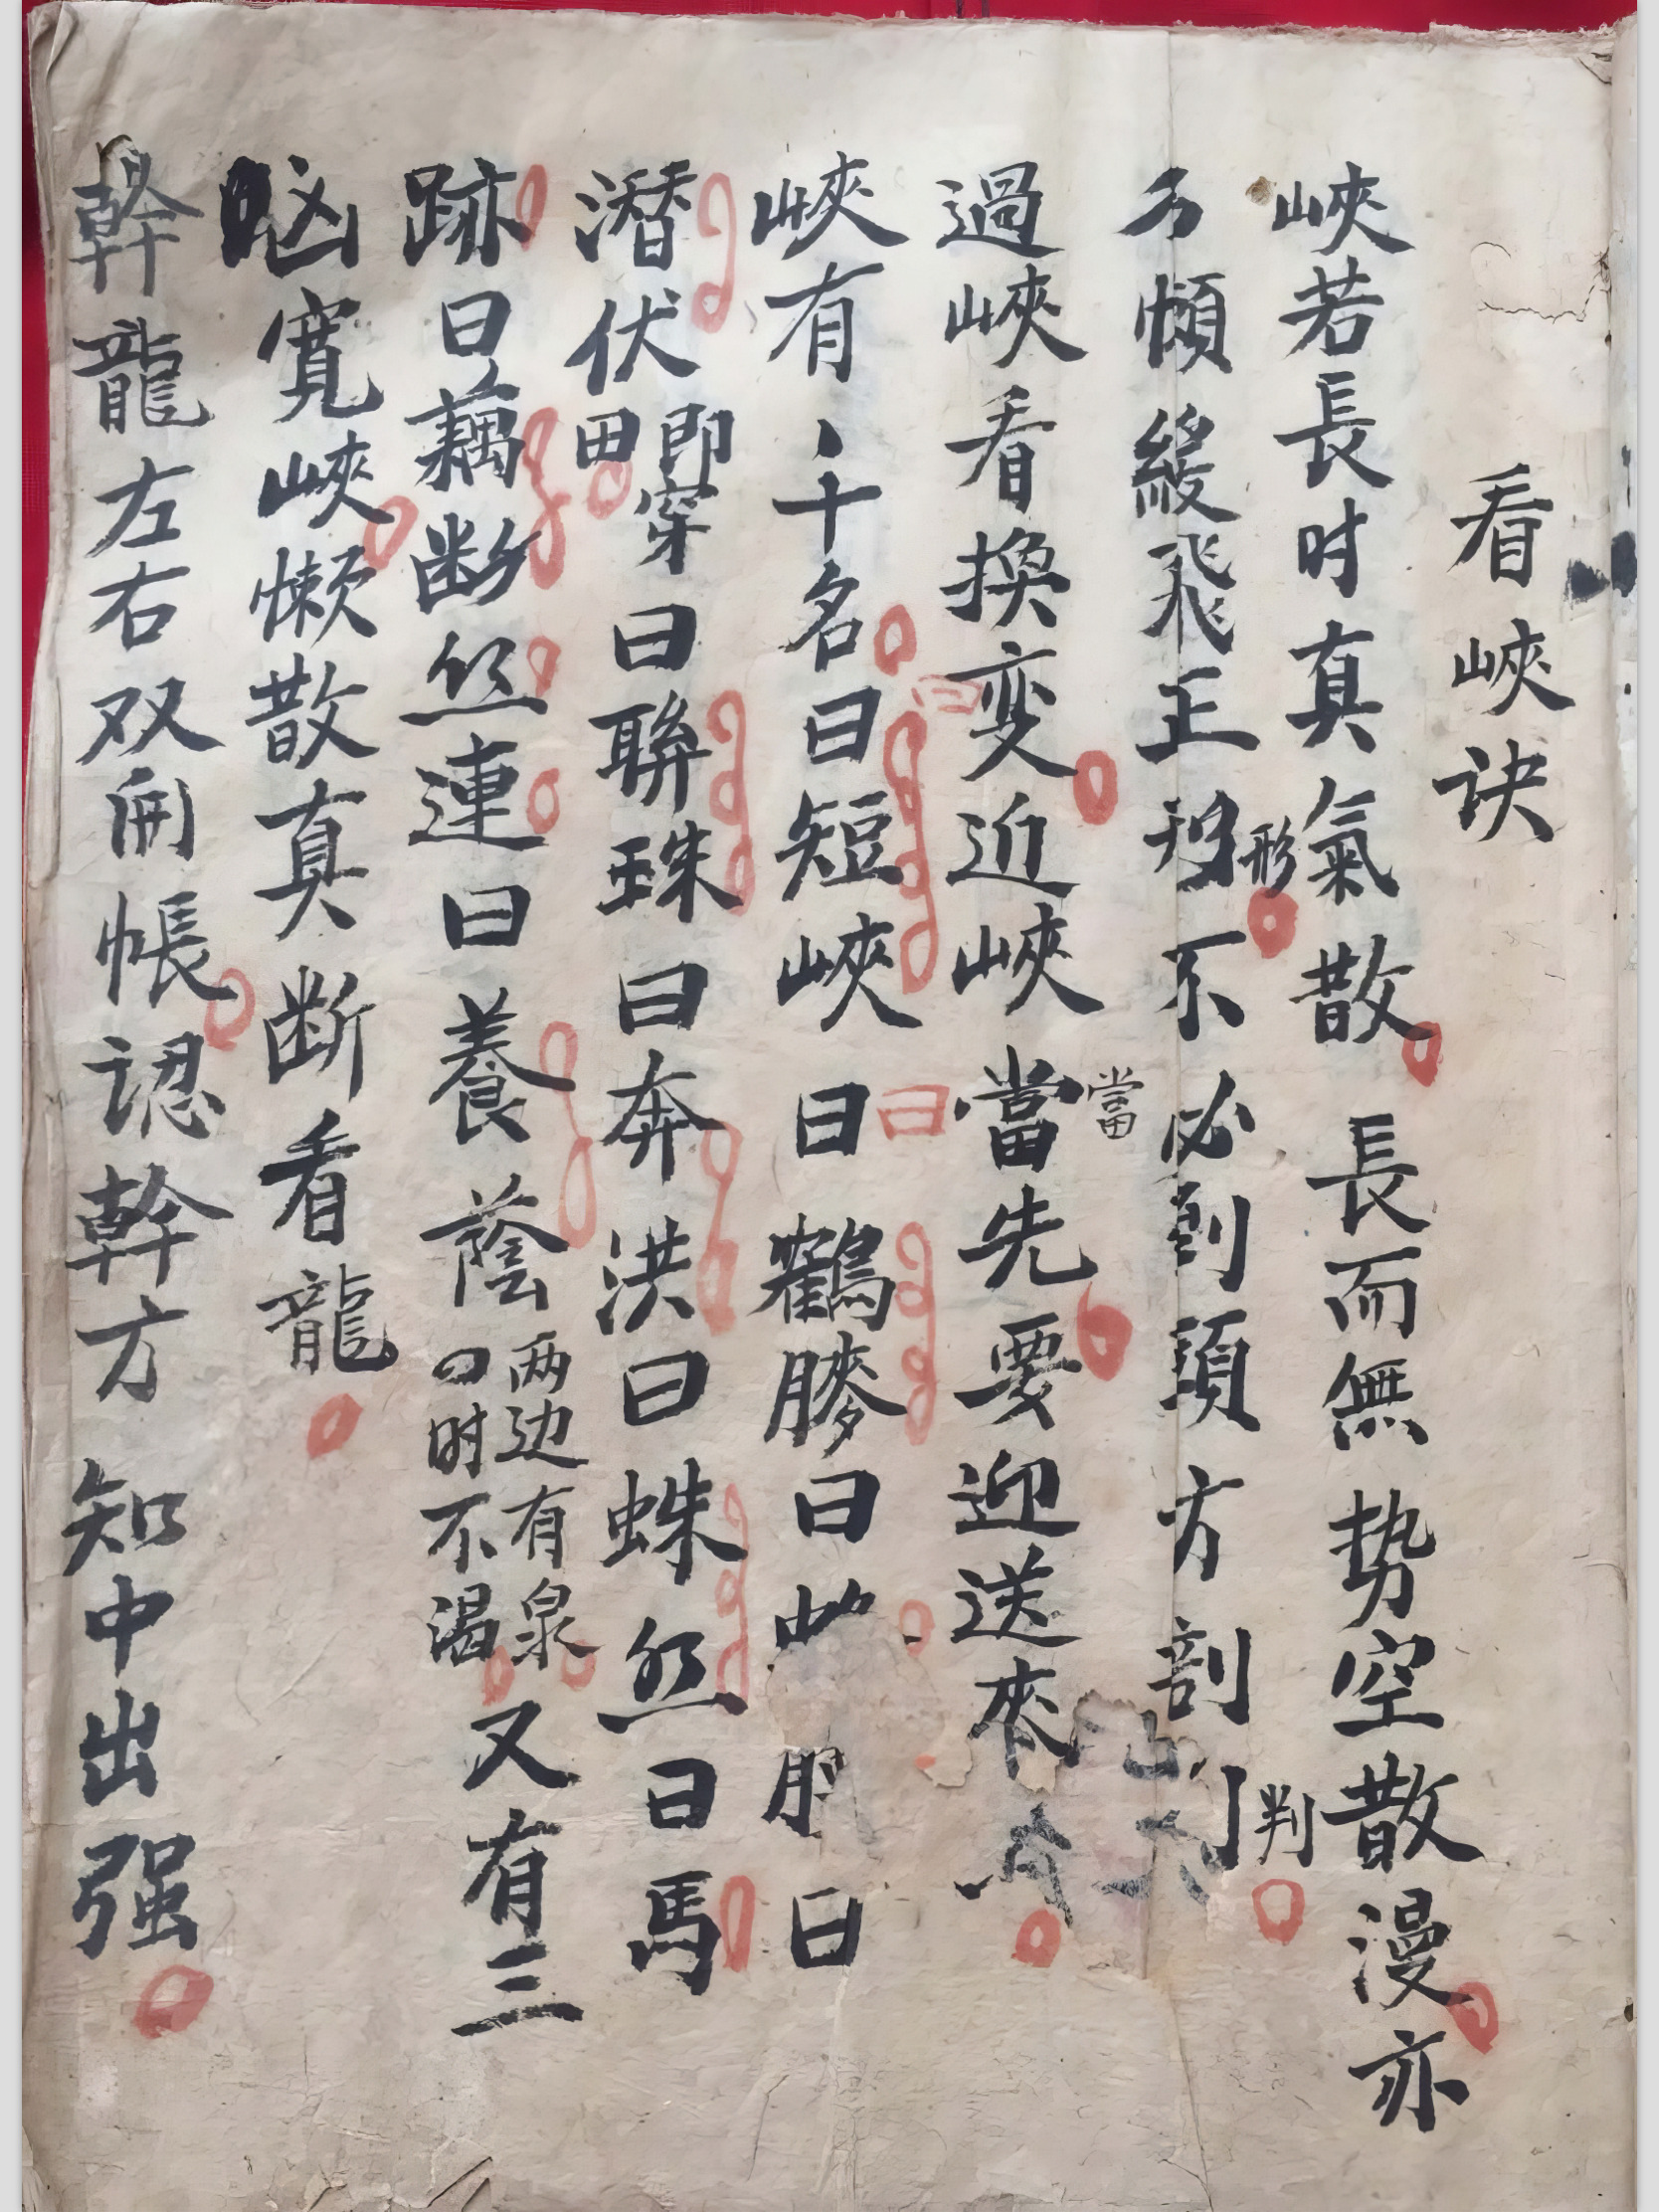 看峽诀
峽若長时真氣散長而無势空散漫亦
頻緩飛正形不必到頭方剖判
過峽看換变近峽當先要迎送來
峽有十名曰短峽曰鶴膝曰曰
潛伏即穿田曰聨珠曰奔洪曰蛛丝曰馬
跡曰藕断丝連曰養蔭两边有泉四时不渴又有三
凶寬峽懒散真断看龍
幹龍左右双開帳認幹方知中出强